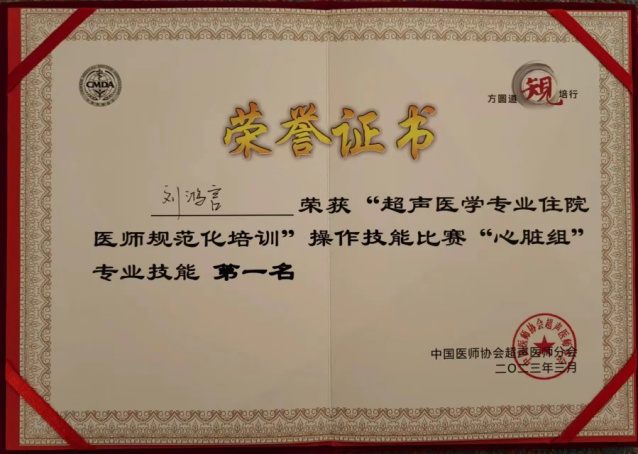 CMDA
方圆道 规 培行
荣誉证书
刘鸿言 荣获“超声医学专业住院
医师规范化培训”操作技能比赛“心脏组”
专业技能 第一名
中国医师协会超声医师分会
二〇二三年三月
中国医师协会超声医师分会